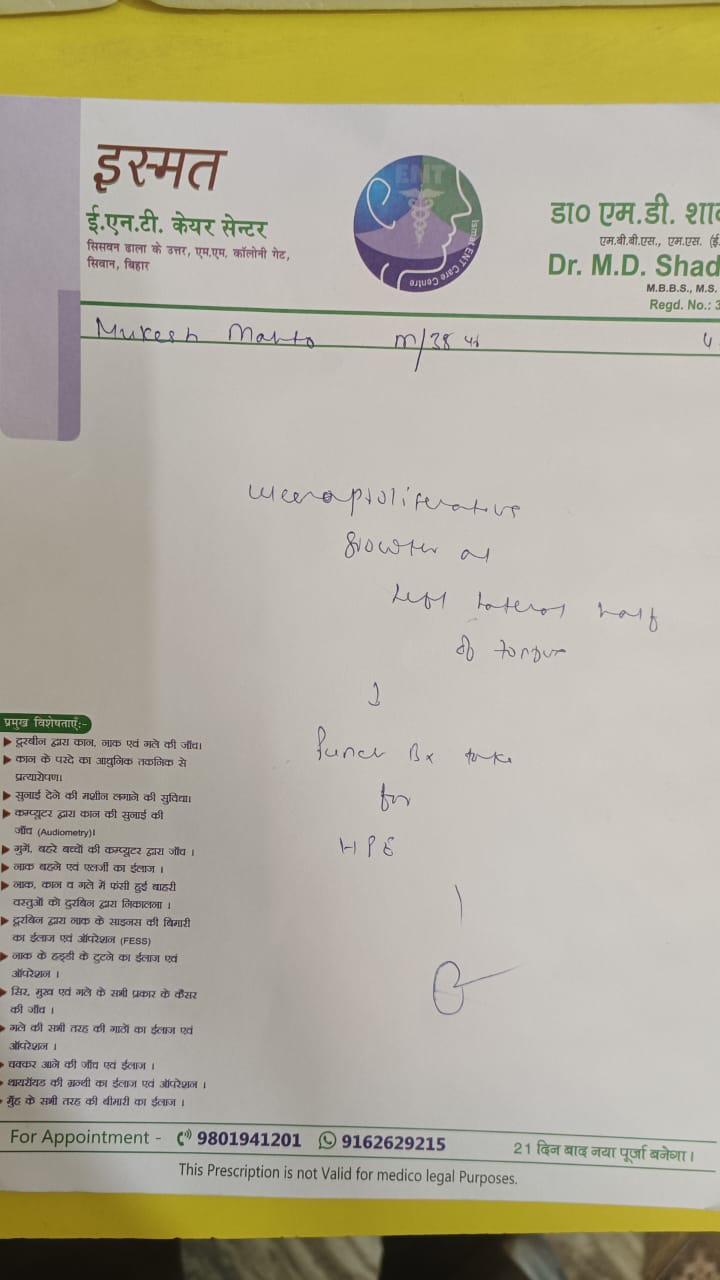 इस्मत
ई.एन.टी. केयर सेन्टर
सिसवन ढाला के उत्तर, एम.एम. कॉलोनी गेट,
सिवान, बिहार
ENT
Ismat ENT Care Centre
डा० एम.डी. शा
एम.बी.बी.एस., एम.एस. (ई
Dr. M.D. Shad
M.B.B.S., M.S.
Regd. No.: 3
Mukesh Mahto M/38 yr 4
ulceroproliferative
growth at
Left lateral half
of tongue
↓
Punch Bx take
for
HPE
प्रमुख विशेषताएँ:-
दूरबीन द्वारा कान, नाक एवं गले की जाँच।
कान के परदे का आधुनिक तकनिक से
प्रत्यारोपण।
सुनाई देने की मशीन लगाने की सुविधा।
कम्प्यूटर द्वारा कान की सुनाई की
जाँच (Audiometry)।
गुगें, बहरे बच्चों की कम्प्यूटर द्वारा जाँच ।
नाक बहने एवं एलर्जी का ईलाज ।
नाक, कान व गले में फंसी हुई बाहरी
वस्तुओं को दुरबिन द्वारा निकालना ।
दूरबिन द्वारा नाक के साइनस की बिमारी
का ईलाज एवं ऑपरेशन (FESS)
नाक के हड्डी के टुटने का ईलाज एवं
ऑपरेशन ।
सिर, मुख एवं गले के सभी प्रकार के कैंसर
की जाँच ।
गले की सभी तरह की गाठों का ईलाज एवं
ऑपरेशन ।
चक्कर आने की जाँच एवं ईलाज ।
थायरॉयड की ग्रन्थी का ईलाज एवं ऑपरेशन ।
मुँह के सभी तरह की बीमारी का ईलाज ।
For Appointment - 9801941201 9162629215
21 दिन बाद नया पूर्जा बनेगा।
This Prescription is not Valid for medico legal Purposes.